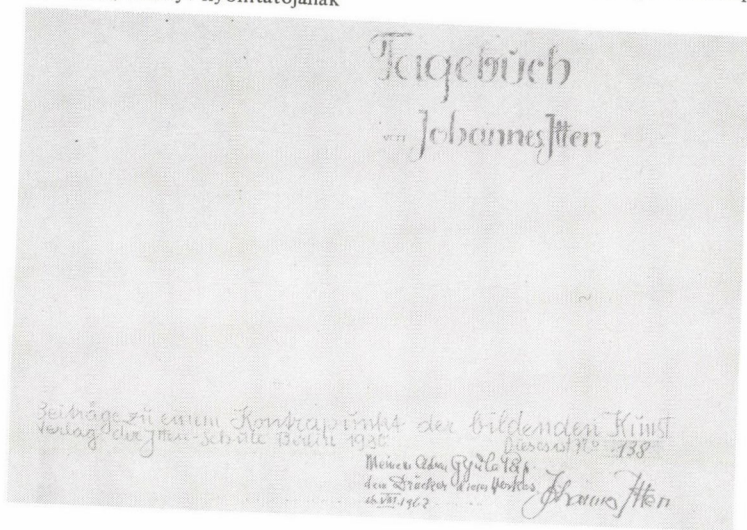 nyomtatójának
Tagebuch
von Johannes Itten
Beiträge zu einem Kontrapunkt der bildenden Kunst
Verlag der Itten-Schule Berlin 1930
Dieses ist No 138
Gyula Pap
den Drücker Werkes
VIII. 1962
Johannes Itten